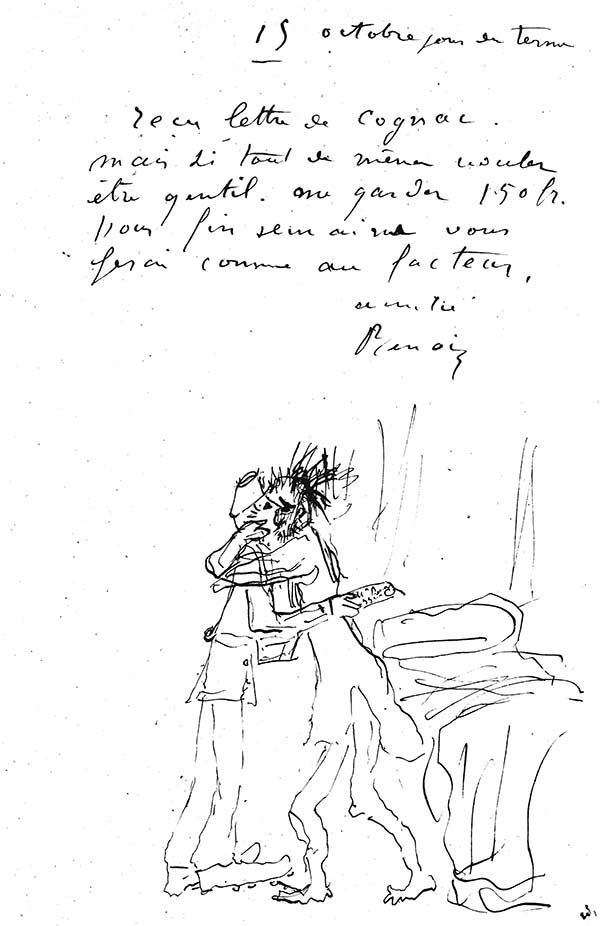 15 octobre jour du terme
reçu lettre de Cognac.
mais si tout de même vouler
être gentil. me garder 150 fr.
pour fin semaine vous
ferai comme au facteur,
amitié
Renoir